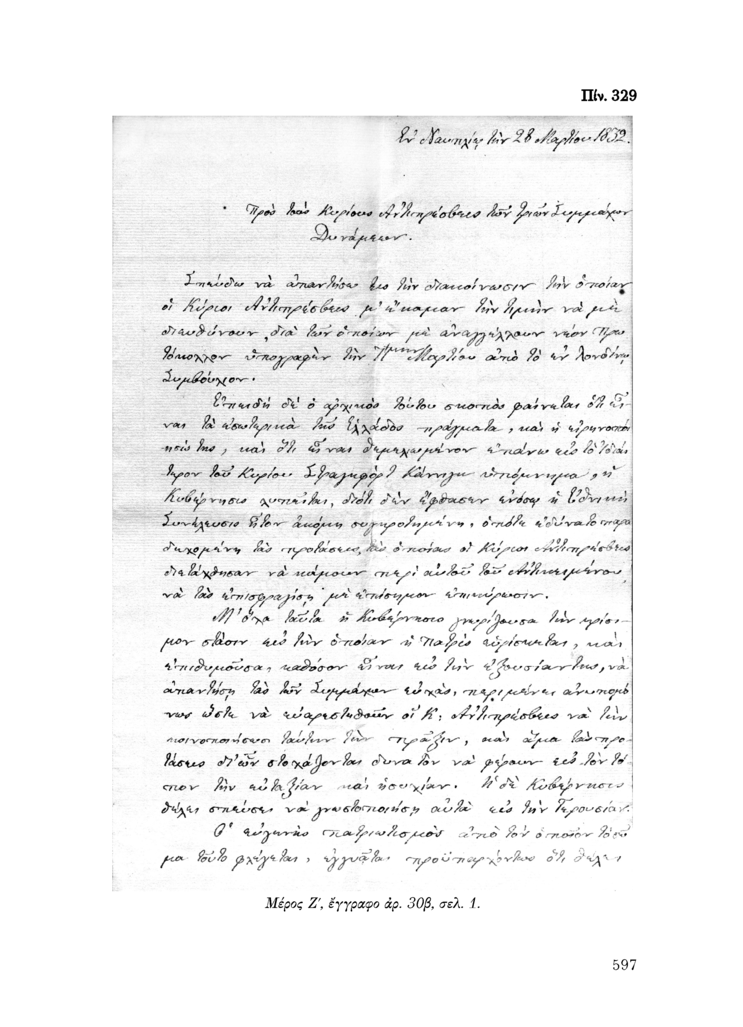 Πίν. 329
Ἐν Ναυπλίῳ τὴν 28 Μαρτίου 1832.
Πρὸς τοὺς Κυρίους Ἀντιπρέσβεις τῶν τριῶν Συμμάχων
Δυνάμεων.
Σπεύδω νὰ ἀπαντήσω εἰς τὴν διακοίνωσιν τὴν ὁποίαν
οἱ Κύριοι Ἀντιπρέσβεις μ' ἔκαμαν τὴν τιμὴν νὰ μὲ
διευθύνουν, διὰ τῶν ὁποίων μὲ ἀναγγέλλουν νέον πρω
τόκολλον ὑπογραφὲν τὴν Μαρτίου ἀπὸ τὸ ἐν Λονδίνῳ
Συμβούλιον.
Ἐπειδὴ δὲ ὁ ἀρχικὸς τούτου σκοπὸς φαίνεται ὅτι εἶ
ναι τὰ ἐσωτερικὰ τῆς Ἑλλάδος πράγματα, καὶ ἡ εἰρηνοποί
ησίς της, καὶ ὅτι εἶναι θεμελιωμένον ἐπάνω εἰς τὸ ἰδιαί
τερον τοῦ Κυρίου Στράτφορτ Κάννιγγ ὑπόμνημα, ἡ
Κυβέρνησις λυπεῖται, διότι δὲν ἔφθασεν ἐνόσῳ ἡ Ἐθνικὴ
Συνέλευσις ἦτον ἀκόμη συγκροτημένη, ὁπότε ἐδύνατο παρα
δεχομένη τὰς προτάσεις, τὰς ὁποίας οἱ Κύριοι Ἀντιπρέσβεις
διετάχθησαν νὰ κάμουν περὶ αὐτοῦ τοῦ Ἀντικειμένου
νὰ τὰς ἐπισφραγίσῃ μὲ ἐπίσημον ἐπικύρωσιν.
Μ' ὅλα ταῦτα ἡ Κυβέρνησις γνωρίζουσα τὴν κρίσι
μον στάσιν εἰς τὴν ὁποίαν ἡ Πατρὶς εὑρίσκεται, καὶ
ἐπιθυμοῦσα, καθόσον εἶναι εἰς τὴν ἐξουσίαν της, νὰ
ἀπαντήσῃ τὰς τῶν Συμμάχων εὐχάς, περιμένει ἀνυπομό
νως ὥστε νὰ εὐαρεστηθοῦν οἱ Κ. Ἀντιπρέσβεις νὰ τὴν
κοινοποιήσωσι ταύτην τὴν πρᾶξιν, καὶ ἅμα τὰς προ
τάσεις δι' ὧν στοχάζονται δυνατὸν νὰ φέρουν εἰς τὸν τό
πον τὴν εὐταξίαν καὶ ἡσυχίαν. Ἡ δὲ Κυβέρνησις
θέλει σπεύσει νὰ γνωστοποιήσῃ αὐτὰ εἰς τὴν Γερουσίαν.
Ὁ εὐγενὴς πατριωτισμὸς ἀπὸ τὸν ὁποῖον τὸ σῶ
μα τοῦτο φλέγεται, ἐγγυᾶται προϋπαρχόντως ὅτι θέλει
Μέρος Ζ', ἔγγραφο ἀρ. 30β, σελ. 1.
597